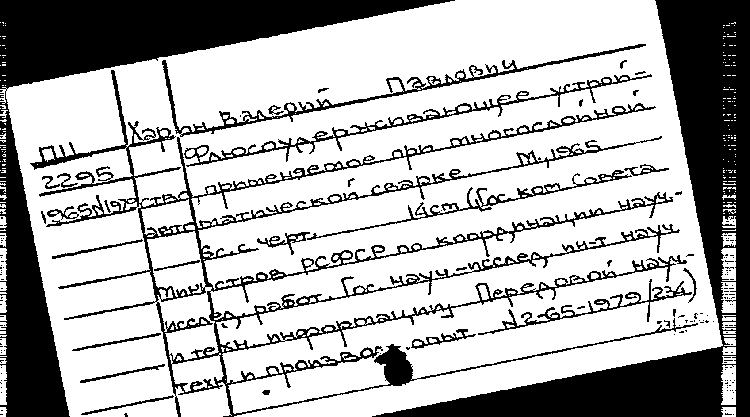 Харин, Валерий Павлович
П11 Флюсоудерживающее устрой-
2295 ство, применяемое при многослойной
1965№1979 автоматической сварке. М., 1965
6с. с черт. 14см (Гос. ком Совета
Министров РСФСР по координации науч.-
исслед. работ. Гос. науч-исслед. ин-т науч
и техн. информации. Передовой науч.-
техн. и производ. опыт №2-65-1979/234)